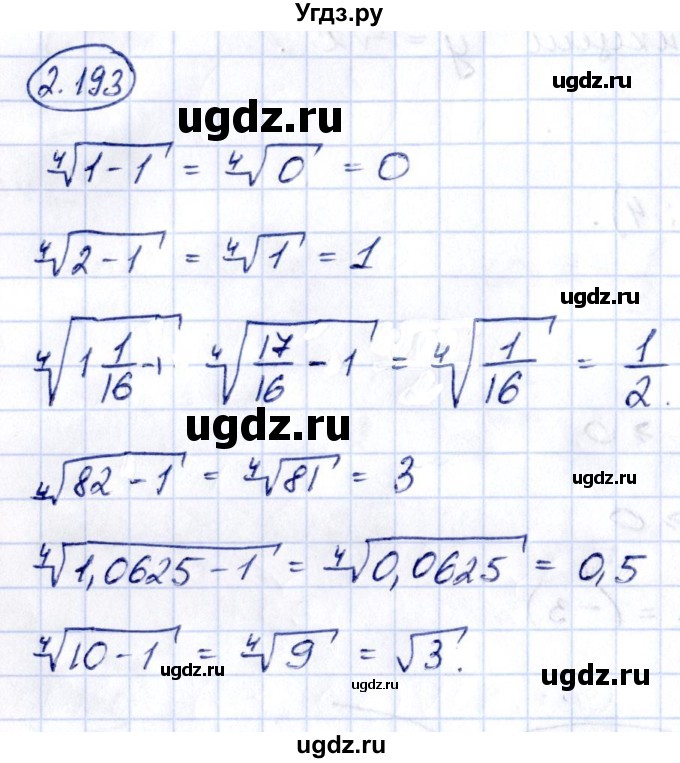 Угдз.ру
2.193
ugdz.ru
ugdz.ru
∜(1-1) = ∜0 = 0
∜(2-1) = ∜1 = 1
ugdz.ru
∜(1 1/16 - 1) ∜(17/16 - 1) = ∜(1/16) = 1/2.
ugdz.ru
∜(82-1) = ∜81 = 3
ugdz.ru
∜(1,0625-1) = ∜0,0625 = 0,5
∜(10-1) = ∜9 = √3.
ugdz.ru
ugdz.ru
ugdz.ru
ugdz.ru